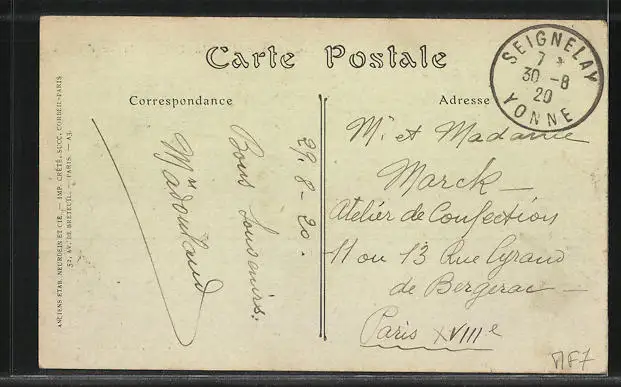 Carte Postale
Correspondance
Adresse
SEIGNELAY
7 *
30 -8
20
YONNE
29. 8 - 20.
Bons Souvenirs.
Mr et Madame
Marck -
Atelier de Confection
11 ou 13 Rue Cyrano
de Bergerac -
Paris XVIIIe
ANCIENS ETAB. NEURDEIN ET CIE. — IMP. CRÉTÉ, SUCC. CORBEIL-PARIS
52, AV. DE BRETEUIL. — PARIS. — A3.